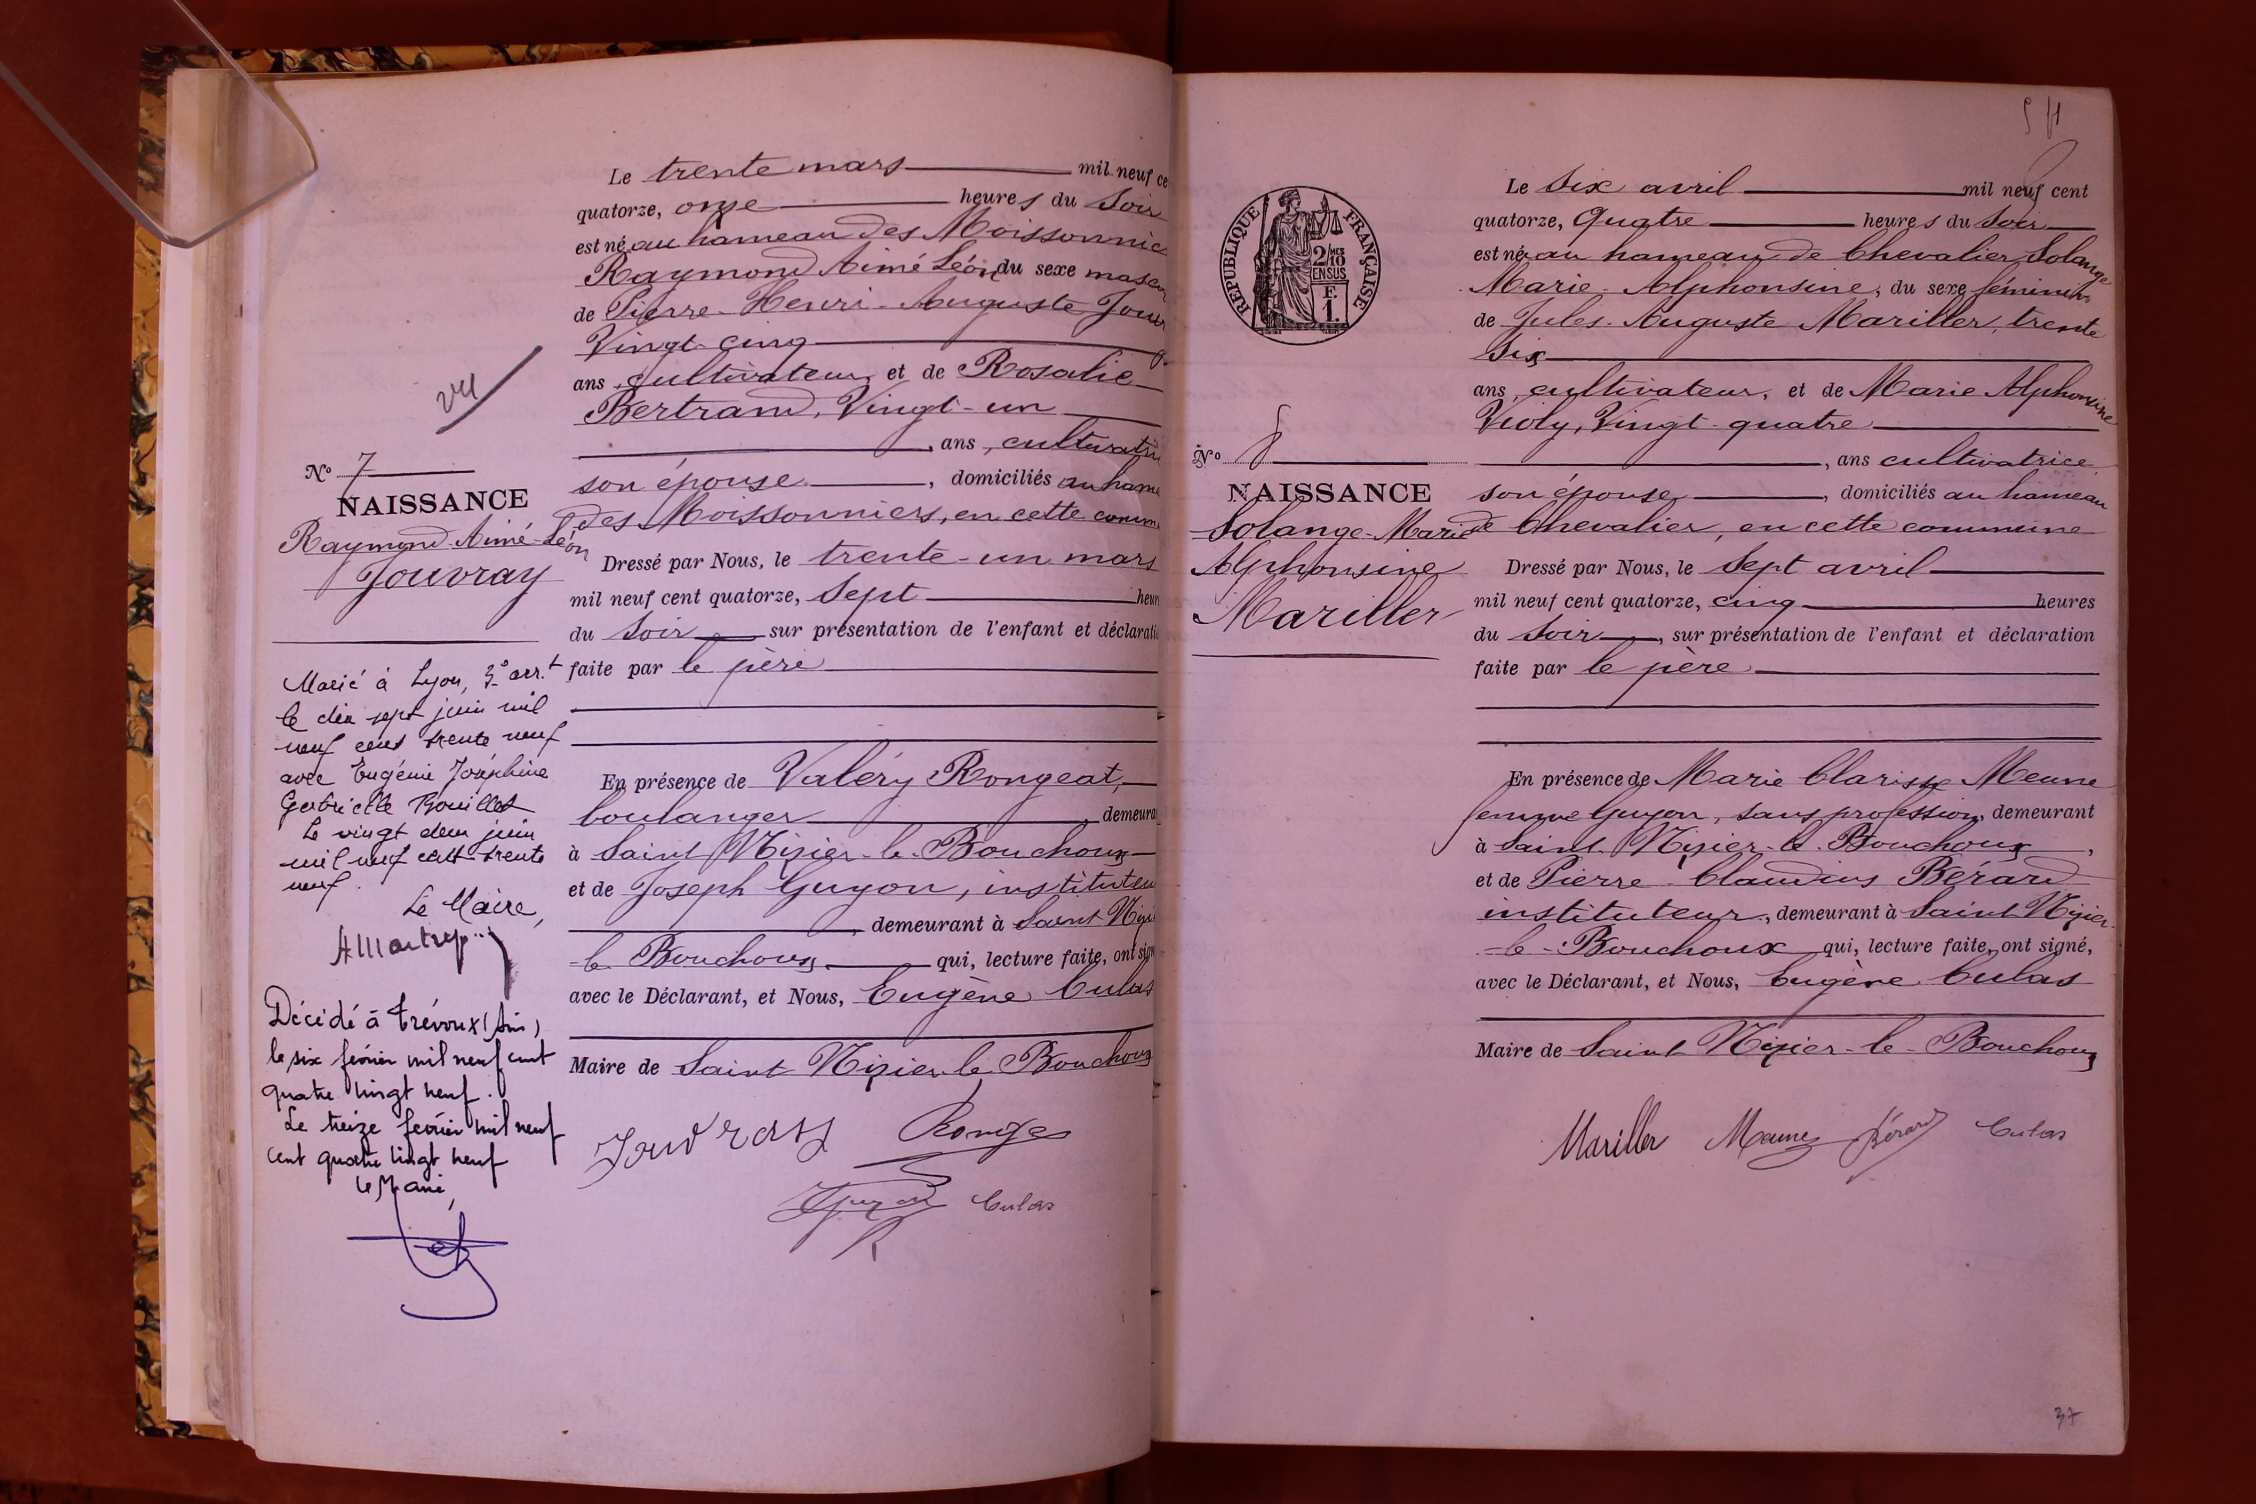 Le trente mars mil neuf ce
quatorze, onze heures du soir
est né au hameau des Moissonnie
Raymond Aimé Léon, du sexe mascu
de Pierre-Henri-Auguste Jouv
Vingt-cinq
ans, cultivateur, et de Rosalie
Bertrand, Vingt-un
, ans, cultivatri
son épouse, domiciliés au hame
des Moissonniers, en cette comm
Dressé par Nous, le trente-un mars
mil neuf cent quatorze, sept heur
du soir sur présentation de l'enfant et déclarati
faite par le père
En présence de Valéry Rongeat,
boulanger demeura
à Saint Nizier-le-Bouchoux
et de Joseph Guyon, instituteu
, demeurant à Saint Nizi
-le Bouchoux qui, lecture faite, ont sign
avec le Déclarant, et Nous, Eugène Culas
Maire de Saint Nizier-le-Bouchoux
Rongea
Culas
N° 7
NAISSANCE
Raymond-Aimé-Léon
Jouvray
Marié à Lyon, 3e arr.t
le dix sept juin mil
neuf cent trente neuf
avec Eugénie Joséphine
Gabrielle Bouillet
Le vingt deux juin
mil neuf cent trente
neuf.
Le Maire,
Décédé à Trévoux (Ain)
le six février mil neuf cent
quatre vingt neuf.
Le treize février mil neuf
cent quatre vingt neuf
Le Maire,
RÉPUBLIQUE FRANÇAISE
2/10
EN SUS
F.
1.
Le six avril mil neuf cent
quatorze, quatre heures du soir
est née au hameau de Chevalier Solange
Marie-Alphonsine, du sexe féminin
de Jules-Auguste Mariller, trente
six
ans, cultivateur, et de Marie Alphonsine
Violy, Vingt-quatre
, ans cultivatrice
son épouse, domiciliés au hameau
de Chevalier, en cette commune
Dressé par Nous, le sept avril
mil neuf cent quatorze, cinq heures
du soir, sur présentation de l'enfant et déclaration
faite par le père
En présence de Marie Clarisse Meune
femme Guyon, sans profession, demeurant
à Saint-Nizier-le-Bouchoux,
et de Pierre-Claudius Bérard
instituteur, demeurant à Saint Nizier
-le-Bouchoux qui, lecture faite, ont signé,
avec le Déclarant, et Nous, Eugène Culas
Maire de Saint Nizier-le-Bouchoux
Mariller Meune Bérard Culas
N° 8
NAISSANCE
Solange-Marie
Alphonsine
Mariller
37